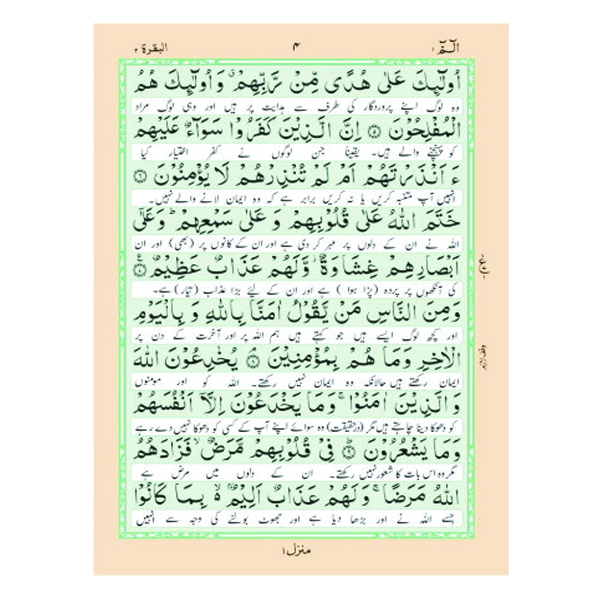 الٓـمّٓ ۱ ۴ البقرة ۲
اُولٰٓئِكَ عَلٰى هُدًى مِّنْ رَّبِّهِمْ ۗ وَاُولٰٓئِكَ هُمُ
وہ لوگ اپنے پروردگار کی طرف سے ہدایت پر ہیں اور وہی لوگ مراد
الْمُفْلِحُوْنَ ۝ اِنَّ الَّذِيْنَ كَفَرُوْا سَوَآءٌ عَلَيْهِمْ
کو پہنچنے والے ہیں۔ یقیناً جن لوگوں نے کفر اختیار کیا
ءَاَنْذَرْتَهُمْ اَمْ لَمْ تُنْذِرْهُمْ لَا يُؤْمِنُوْنَ ۝
انہیں آپ متنبہ کریں یا نہ کریں برابر ہے کہ وہ ایمان لانے والے نہیں۔
خَتَمَ اللّٰهُ عَلٰى قُلُوْبِهِمْ وَعَلٰى سَمْعِهِمْ ؕ وَعَلٰٓى
اللہ نے ان کے دلوں پر مہر کر دی ہے اور ان کے کانوں پر (بھی) اور ان
اَبْصَارِهِمْ غِشَاوَةٌ ؗ وَّلَهُمْ عَذَابٌ عَظِيْمٌ ۝
کی آنکھوں پر پردہ (پڑا ہوا) ہے اور ان کے لیے بڑا عذاب (تیار) ہے۔
وَمِنَ النَّاسِ مَنْ يَّقُوْلُ اٰمَنَّا بِاللّٰهِ وَبِالْيَوْمِ
اور کچھ لوگ ایسے ہیں جو کہتے ہیں ہم اللہ پر اور آخرت کے دن پر
الْاٰخِرِ وَمَا هُمْ بِمُؤْمِنِيْنَ ۝ يُخٰدِعُوْنَ اللّٰهَ
ایمان رکھتے ہیں حالانکہ وہ ایمان نہیں رکھتے۔ اللہ کو اور مومنوں
وَالَّذِيْنَ اٰمَنُوْا ۚ وَمَا يَخْدَعُوْنَ اِلَّآ اَنْفُسَهُمْ
کو دھوکا دینا چاہتے ہیں مگر (درحقیقت) وہ سوائے اپنے آپ کے کسی کو دھوکا نہیں دے رہے
وَمَا يَشْعُرُوْنَ ۝ فِيْ قُلُوْبِهِمْ مَّرَضٌ ۙ فَزَادَهُمُ
مگر وہ اس بات کا شعور نہیں رکھتے۔ ان کے دلوں میں مرض ہے
اللّٰهُ مَرَضًا ۚ وَلَهُمْ عَذَابٌ اَلِيْمٌۢ ۙ بِمَا كَانُوْا
جسے اللہ نے اور بڑھا دیا ہے اور جھوٹ بولنے کی وجہ سے انہیں
منزل ۱